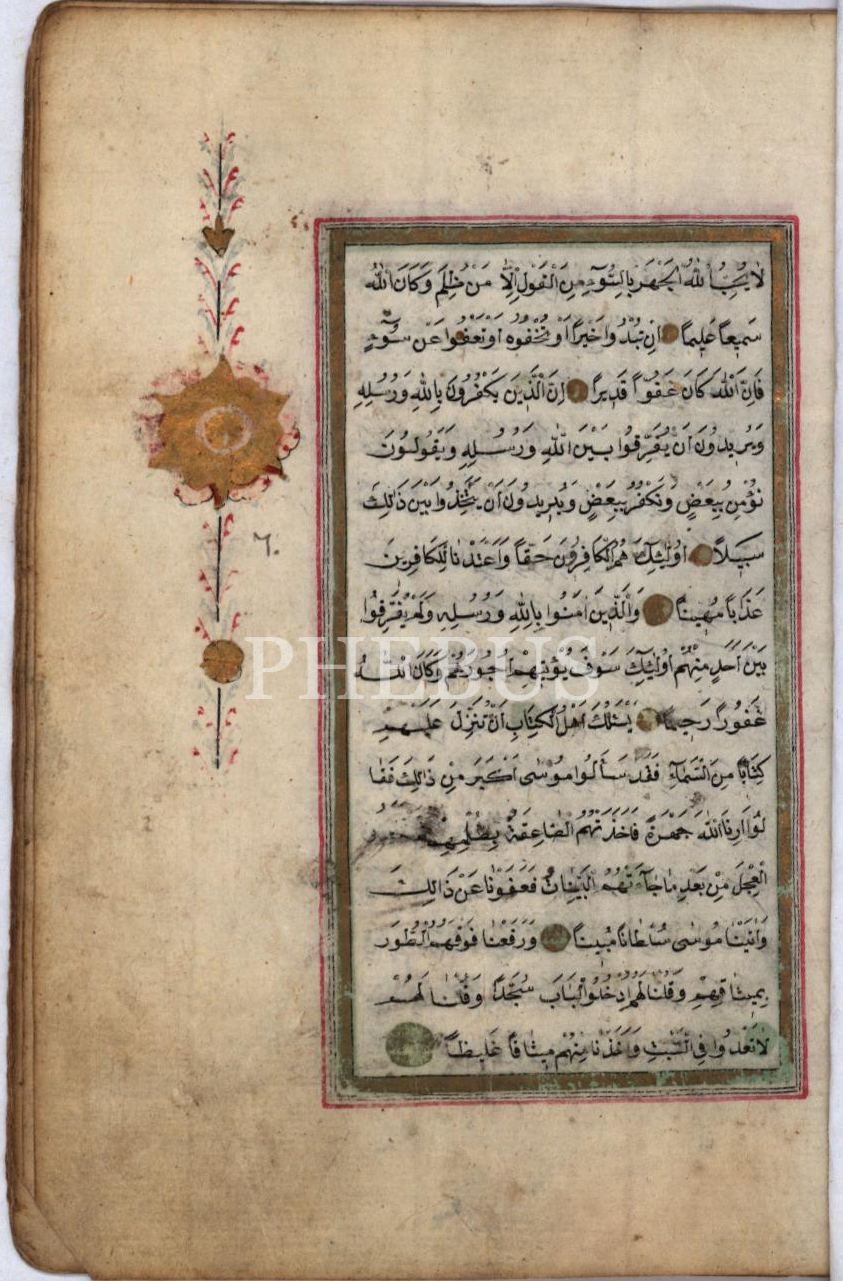 لَا يُحِبُّ اللّٰهُ الْجَهْرَ بِالسُّوٓءِ مِنَ الْقَوْلِ اِلَّا مَنْ ظُلِمَ وَكَانَ اللّٰهُ
سَمِيعاً عَلِيماً اِنْ تُبْدُوا خَيْراً اَوْ تُخْفُوهُ اَوْ تَعْفُوا عَنْ سُوٓءٍ
فَاِنَّ اللّٰهَ كَانَ عَفُوّاً قَدِيراً اِنَّ الَّذِينَ يَكْفُرُونَ بِاللّٰهِ وَرُسُلِهِ
وَيُرِيدُونَ اَنْ يُفَرِّقُوا بَيْنَ اللّٰهِ وَرُسُلِهِ وَيَقُولُونَ
نُؤْمِنُ بِبَعْضٍ وَنَكْفُرُ بِبَعْضٍ وَيُرِيدُونَ اَنْ يَتَّخِذُوا بَيْنَ ذٰلِكَ
سَبِيلاً اُولٰٓئِكَ هُمُ الْكَافِرُونَ حَقّاً وَاَعْتَدْنَا لِلْكَافِرِينَ
عَذَاباً مُهِيناً وَالَّذِينَ اٰمَنُوا بِاللّٰهِ وَرُسُلِهِ وَلَمْ يُفَرِّقُوا
بَيْنَ اَحَدٍ مِنْهُمْ اُولٰٓئِكَ سَوْفَ يُؤْتِيهِمْ اُجُورَهُمْ وَكَانَ اللّٰهُ
غَفُوراً رَحِيماً يَسْئَلُكَ اَهْلُ الْكِتَابِ اَنْ تُنَزِّلَ عَلَيْهِمْ
كِتَاباً مِنَ السَّمَآءِ فَقَدْ سَأَلُوا مُوسٰى اَكْبَرَ مِنْ ذٰلِكَ فَقَا
لُوٓا اَرِنَا اللّٰهَ جَهْرَةً فَاَخَذَتْهُمُ الصَّاعِقَةُ بِظُلْمِهِمْ
الْعِجْلَ مِنْ بَعْدِ مَا جَآءَتْهُمُ الْبَيِّنَاتُ فَعَفَوْنَا عَنْ ذٰلِكَ
وَاٰتَيْنَا مُوسٰى سُلْطَاناً مُبِيناً وَرَفَعْنَا فَوْقَهُمُ الطُّورَ
بِمِيثَاقِهِمْ وَقُلْنَا لَهُمُ ادْخُلُوا الْبَابَ سُجَّداً وَقُلْنَا لَهُمْ
لَا تَعْدُوا فِي السَّبْتِ وَاَخَذْنَا مِنْهُمْ مِيثَاقاً غَلِيظاً
٦٠
PHEBUS